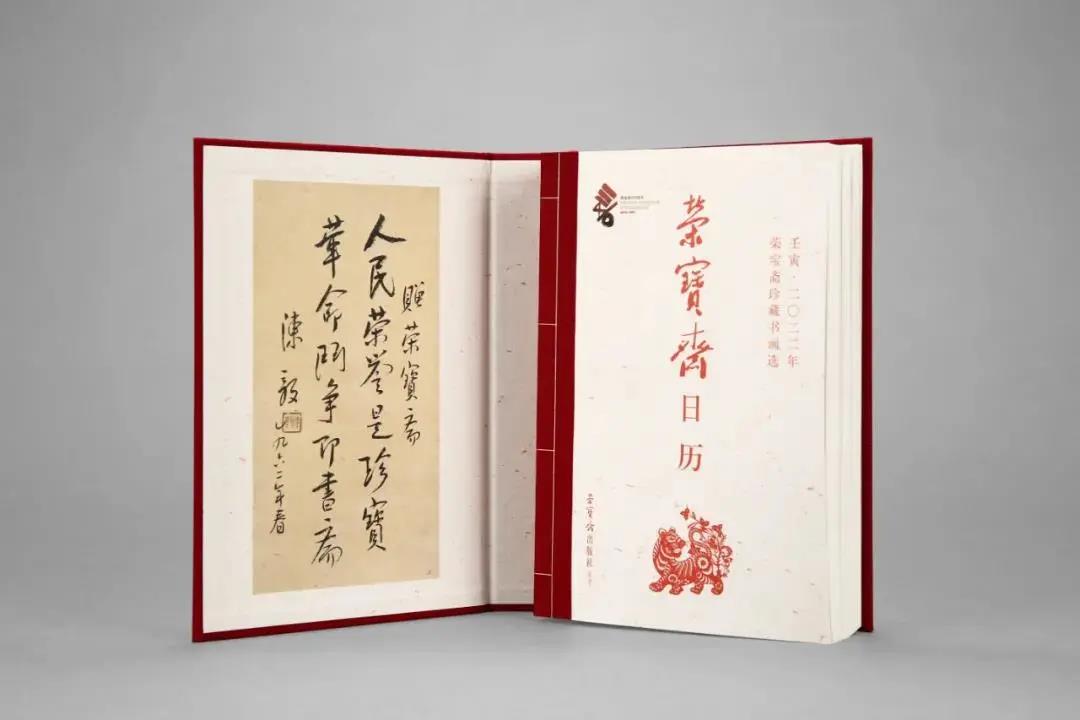 贈荣寶斋
人民荣誉是珍寶
革命鬥争即書斋
陳毅
一九六二年春
壬寅·二〇二二年
荣宝斋珍藏书画选
荣寶齋日历
荣宝斋出版社